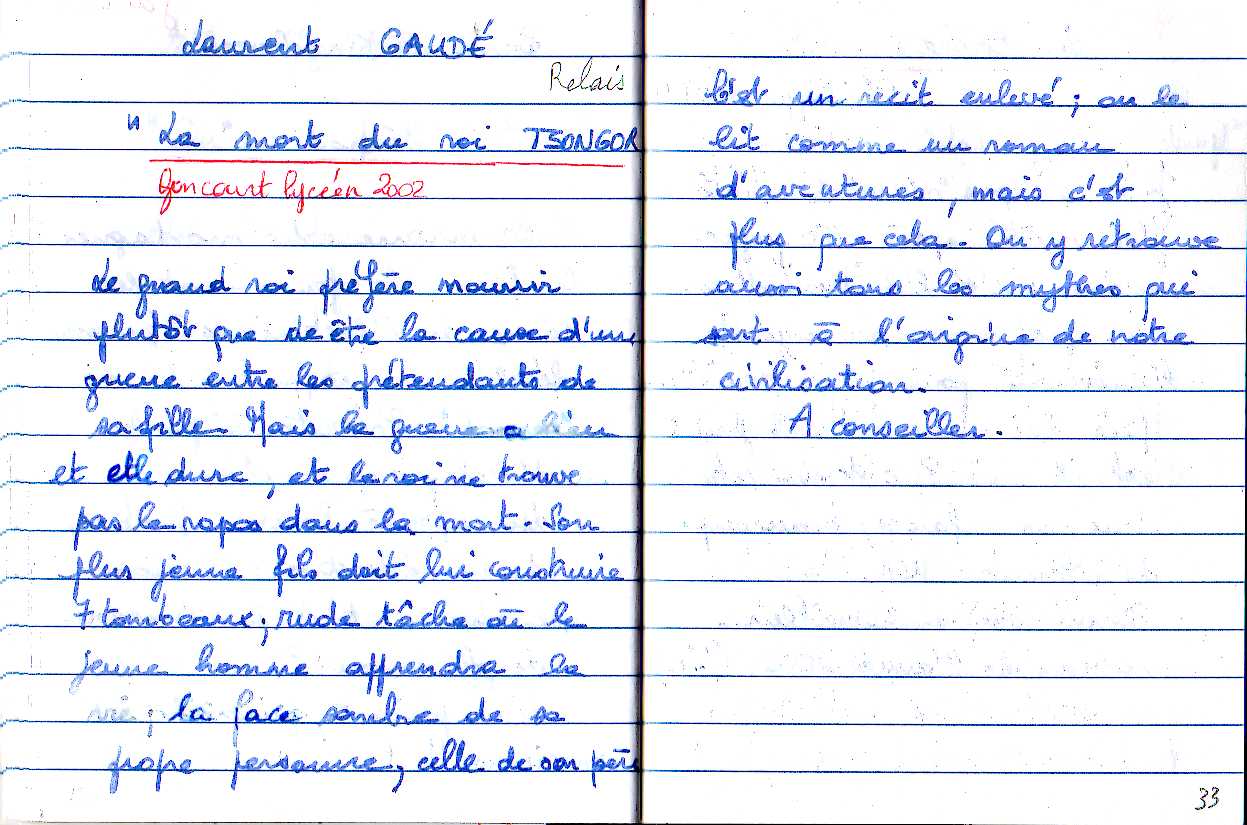 Laurent GAUDÉ
Relais
" La mort du roi TSONGOR
Goncourt lycéen 2002
Le grand roi préfère mourir
plutôt que de être la cause d'une
guerre entre les prétendants de
sa fille Mais la guerre a lieu
et elle dure, et le roi ne trouve
pas le repos dans la mort. Son
plus jeune fils doit lui construire
7 tombeaux; rude tâche où le
jeune homme apprendra la
vie; la face sombre de sa
propre personne, celle de son père
C'est un récit enlevé; on le
lit comme un roman
d'aventures, mais c'est
plus que cela. On y retrouve
aussi tous les mythes qui
sont à l'origine de notre
civilisation.
A conseiller.
33